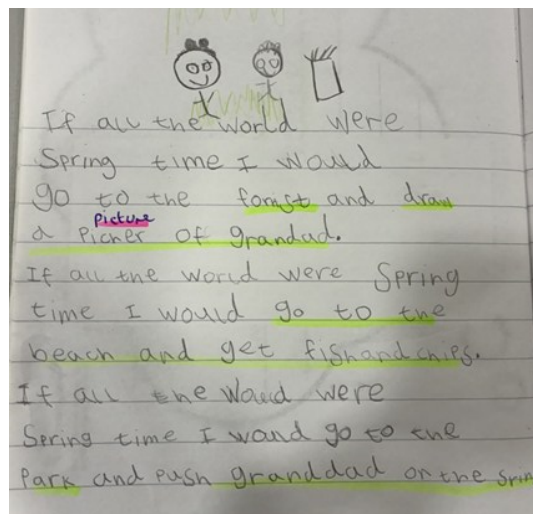 If all the world were
Spring time I would
go to the forist and draw
picture
a Picher of grandad.
If all the world were Spring
time I would go to the
beach and get fish and chips.
If all the Waud were
Spring time I woud go to the
Park and Push granddad on the